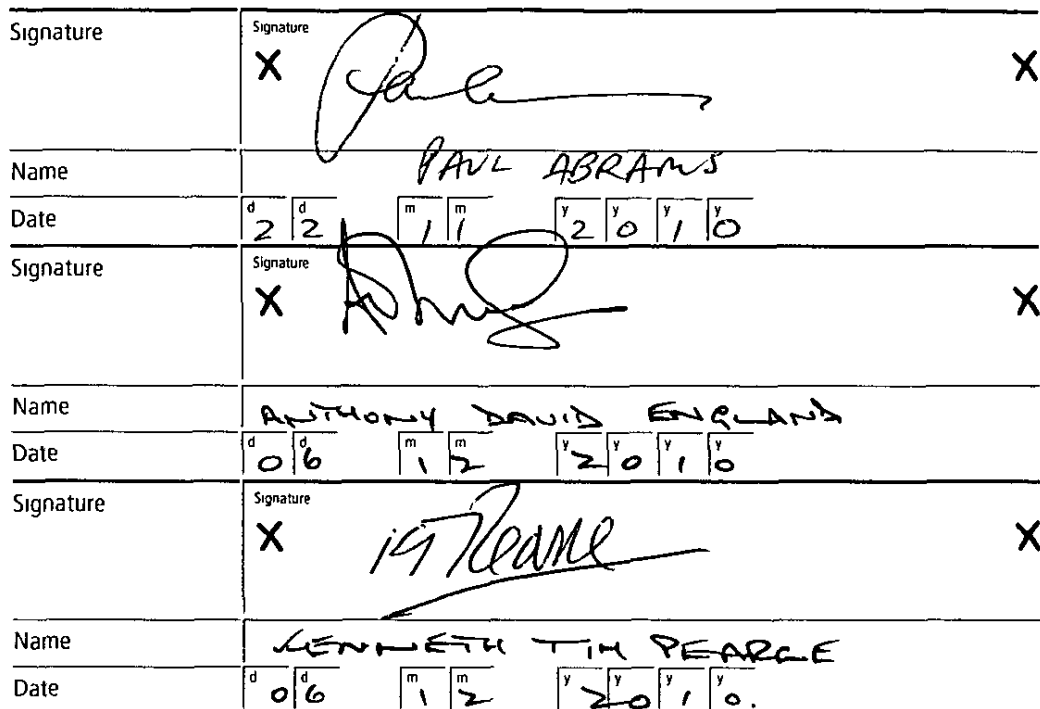 Signature
Signature
X X
Name PAUL ABRAMS
Date d 2 d 2 m 1 m 1 y 2 y 0 y 1 y 0
Signature
Signature
X X
Name ANTHONY DAVID ENGLAND
Date d 0 d 6 m 1 m 2 y 2 y 0 y 1 y 0
Signature
Signature
X KTPearce X
Name KENNETH TIM PEARCE
Date d 0 d 6 m 1 m 2 y 2 y 0 y 1 y 0.